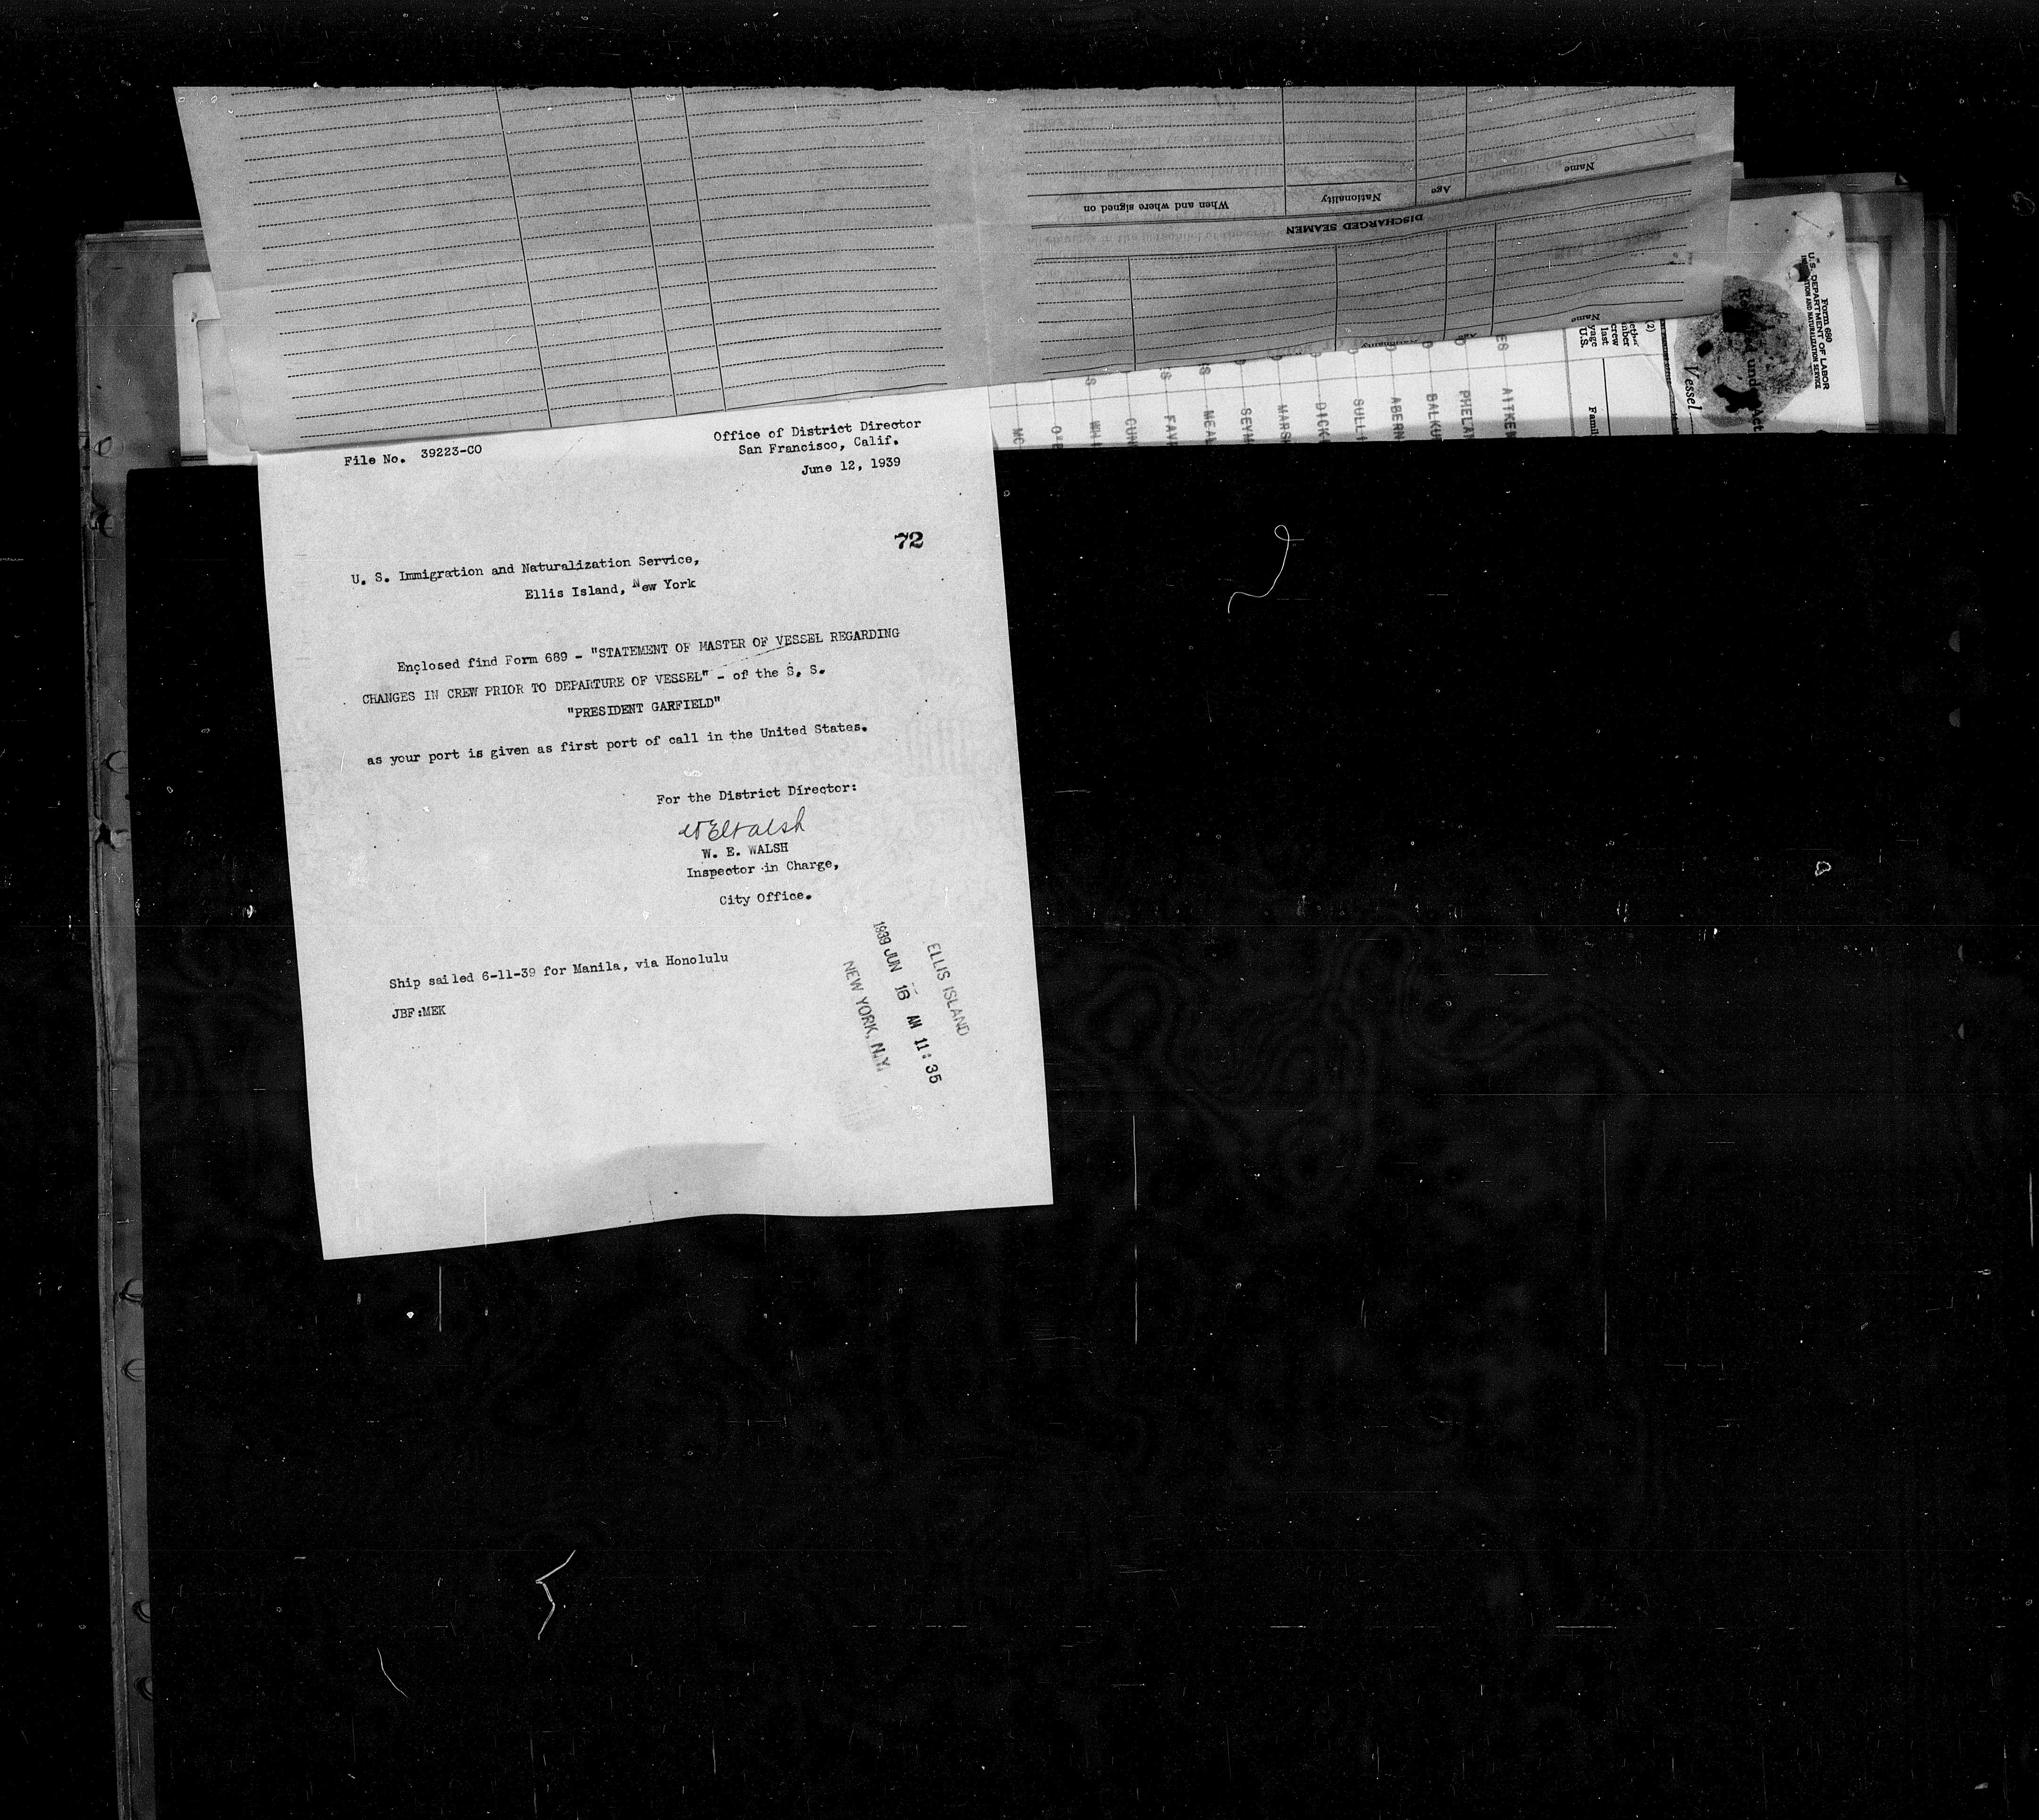 Name
Age
Nationality
When and where signed on
DISCHARGED SEAMEN
Name
Form 689
U. S. DEPARTMENT OF LABOR
Vessel
AITKEN
PHELAN
BALKU
ABERN
SULLI
DICK
MARSH
SEYM
MEAL
FAV
CUN
MC
File No. 39223-CO
Office of District Director
San Francisco, Calif.
June 12, 1939
72
U. S. Immigration and Naturalization Service,
Ellis Island, New York
Enclosed find Form 689 - "STATEMENT OF MASTER OF VESSEL REGARDING
CHANGES IN CREW PRIOR TO DEPARTURE OF VESSEL" - of the S. S.
"PRESIDENT GARFIELD"
as your port is given as first port of call in the United States.
For the District Director:
W E Walsh
W. E. WALSH
Inspector in Charge,
City Office.
Ship sailed 6-11-39 for Manila, via Honolulu
JBF:MEK
ELLIS ISLAND
1939 JUN 16 AM 11:35
NEW YORK, N.Y.